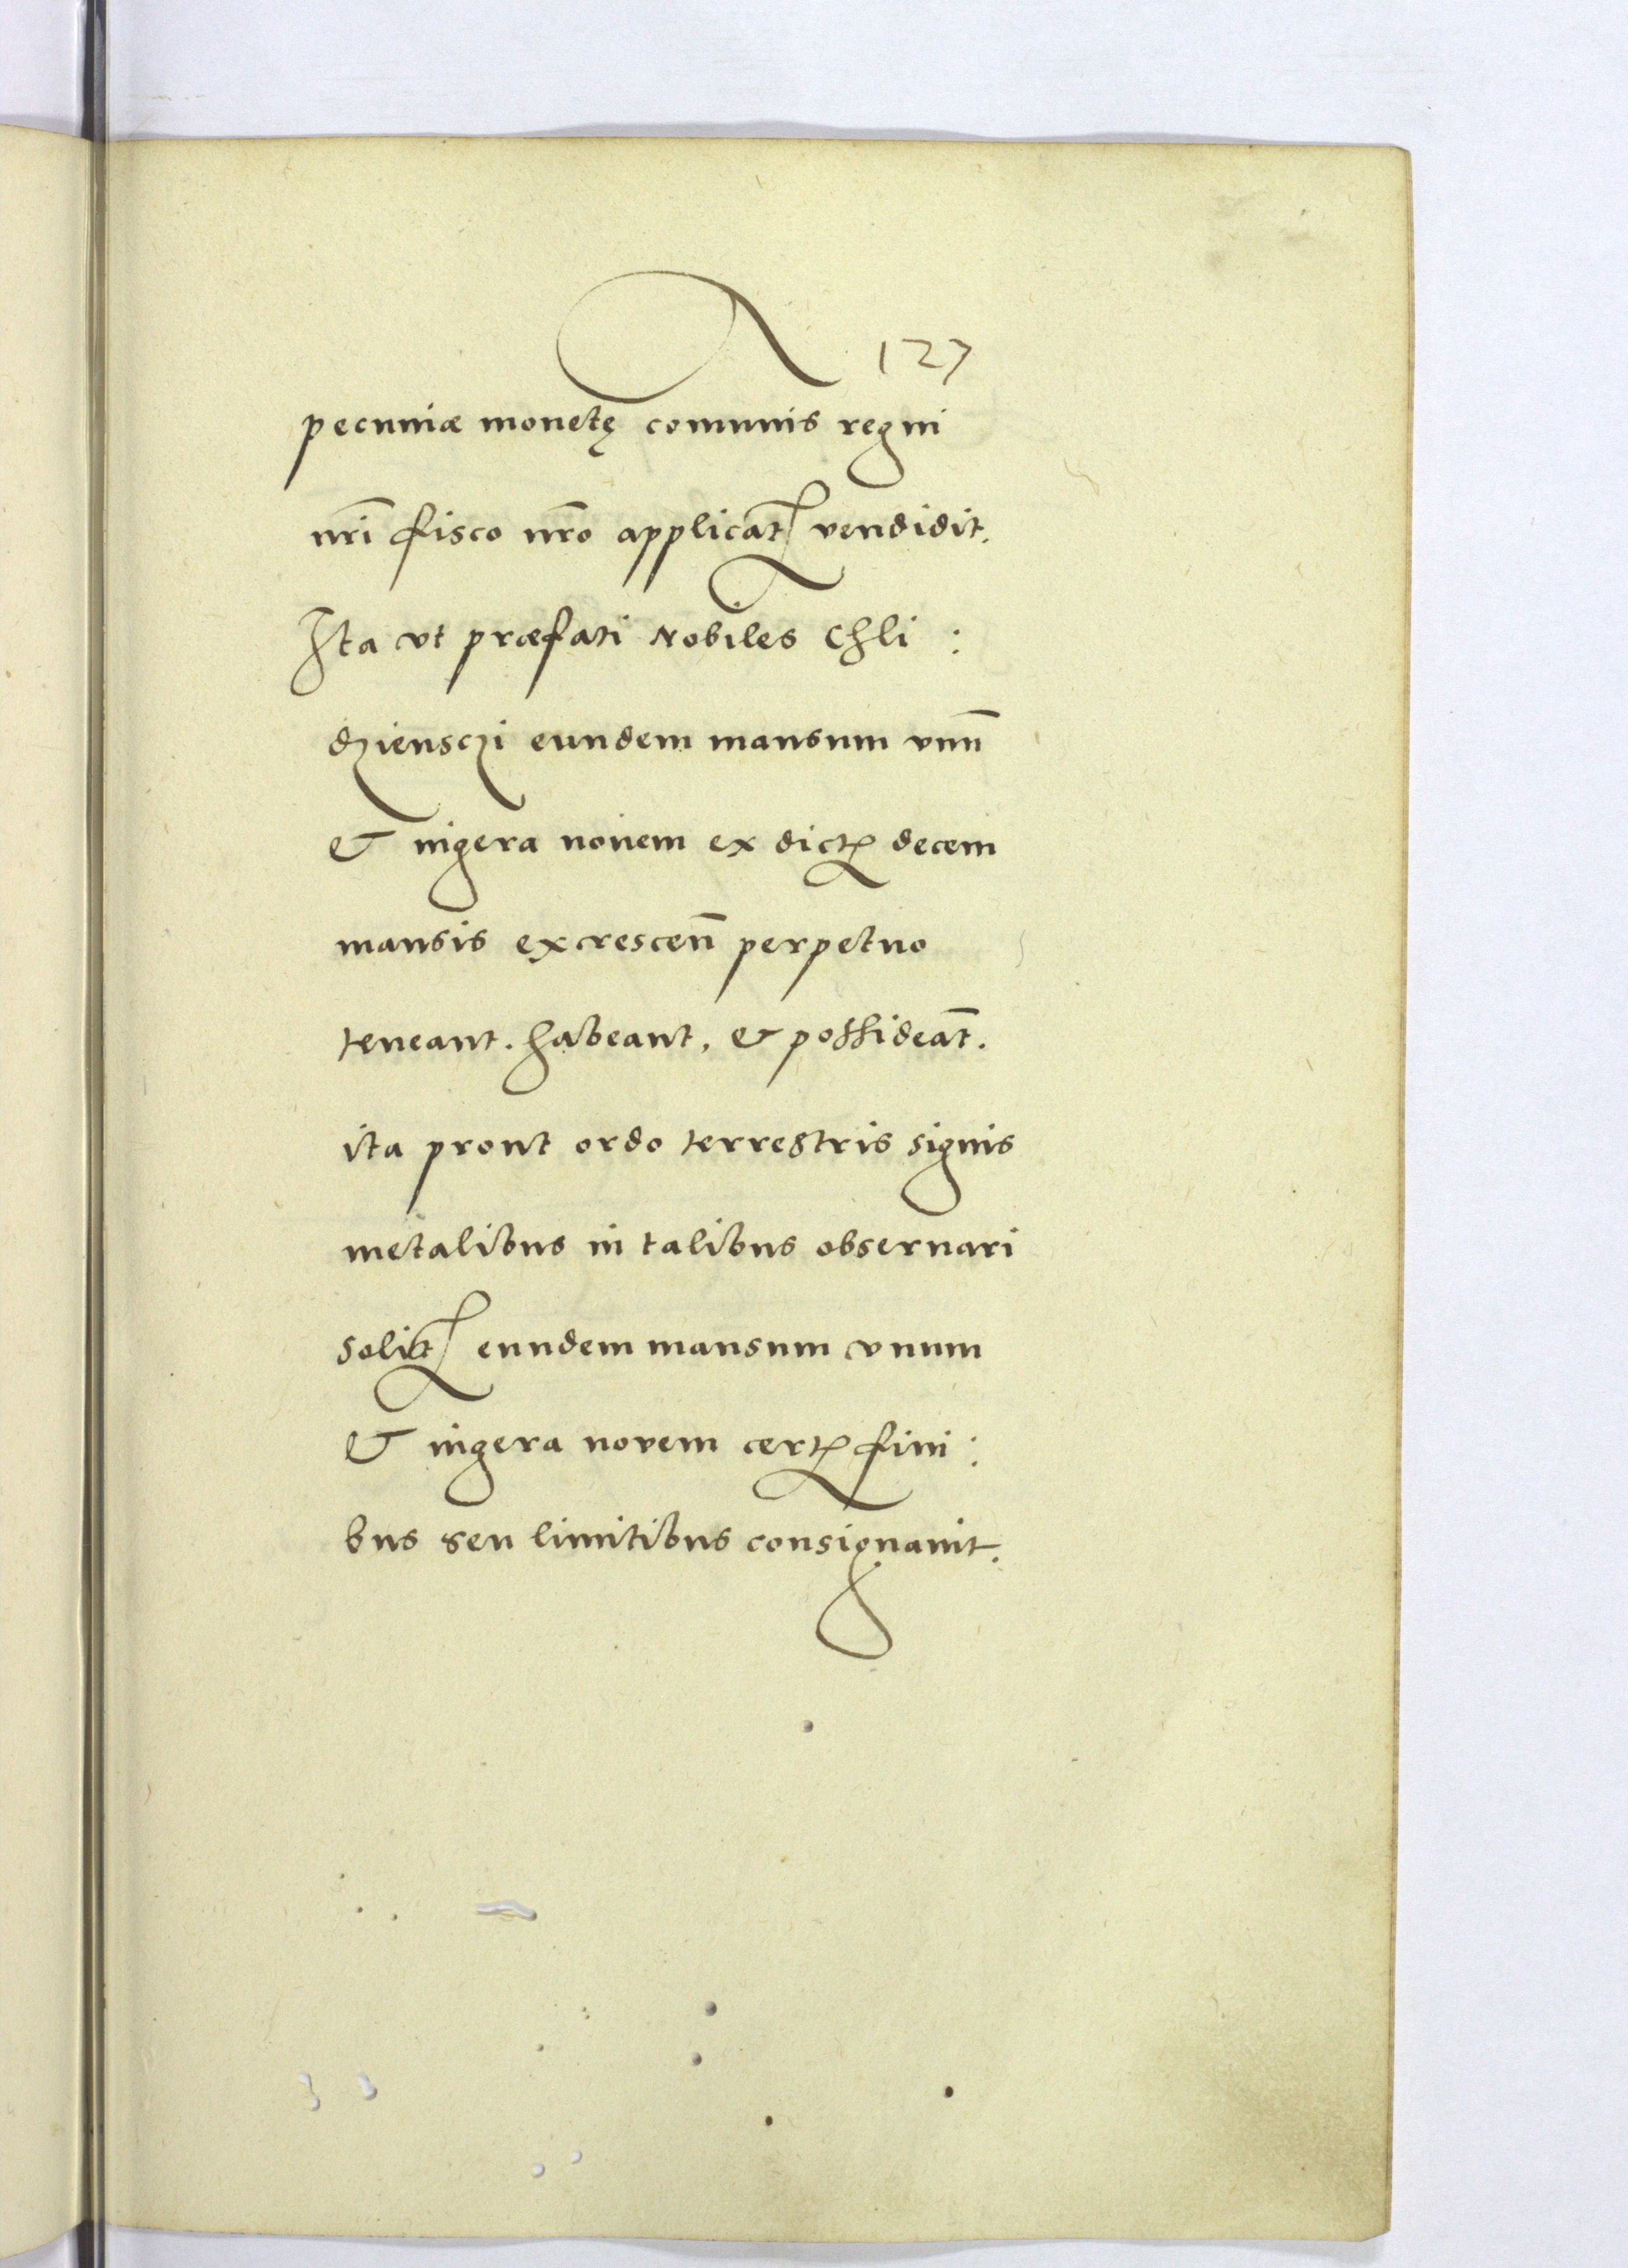 127
pecuniæ monetę comunis regni
nr̃i fisco nr̃o applicat̃ vendidit.
Ita vt præfati Nobiles Chli:
dzienszi eundem mansum vnũ
& iugera nouem ex dict̃ decem
mansis excrescen̄ perpetuo
teneant. habeant, & possideāt.
ita prout ordo terrestris signis
metalibus in talibus obseruari
solit̃ eundem mansum vnum
& iugera novem cert̃ fini:
bus seu limitibus consignauit.